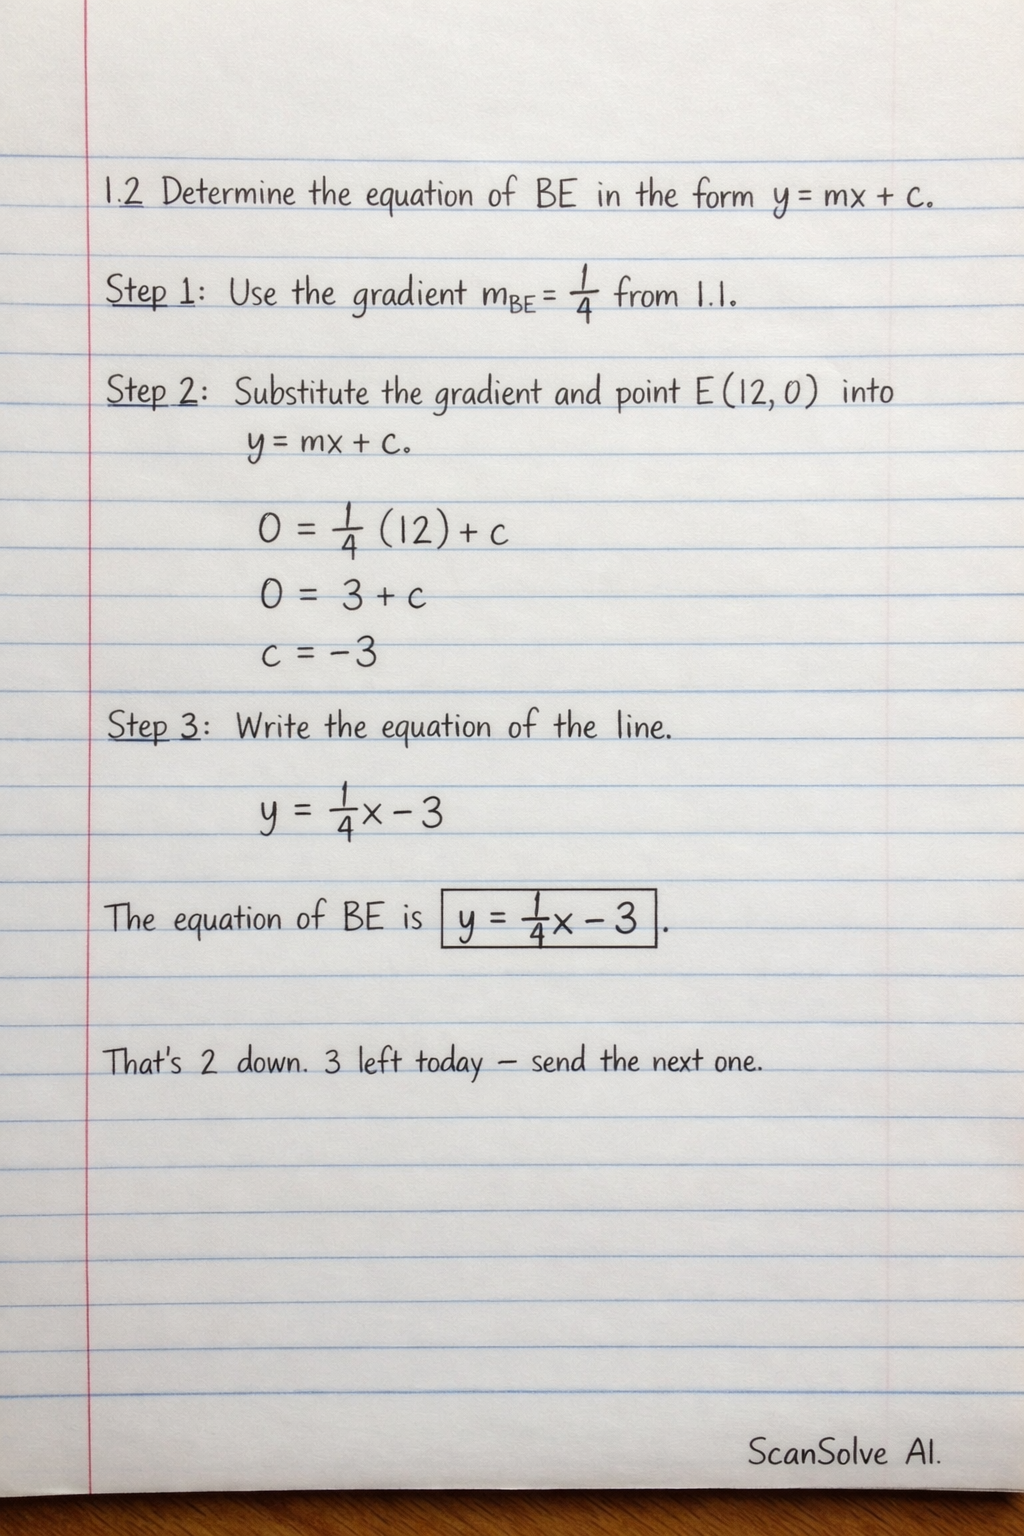 1.2 Determine the equation of BE in the form y = mx + c.
Step 1: Use the gradient m_BE = 1/4 from 1.1.
Step 2: Substitute the gradient and point E (12, 0) into
y = mx + c.
0 = 1/4 (12) + c
0 = 3 + c
c = -3
Step 3: Write the equation of the line.
y = 1/4 x - 3
The equation of BE is y = 1/4 x - 3.
That's 2 down. 3 left today – send the next one.
ScanSolve AI.